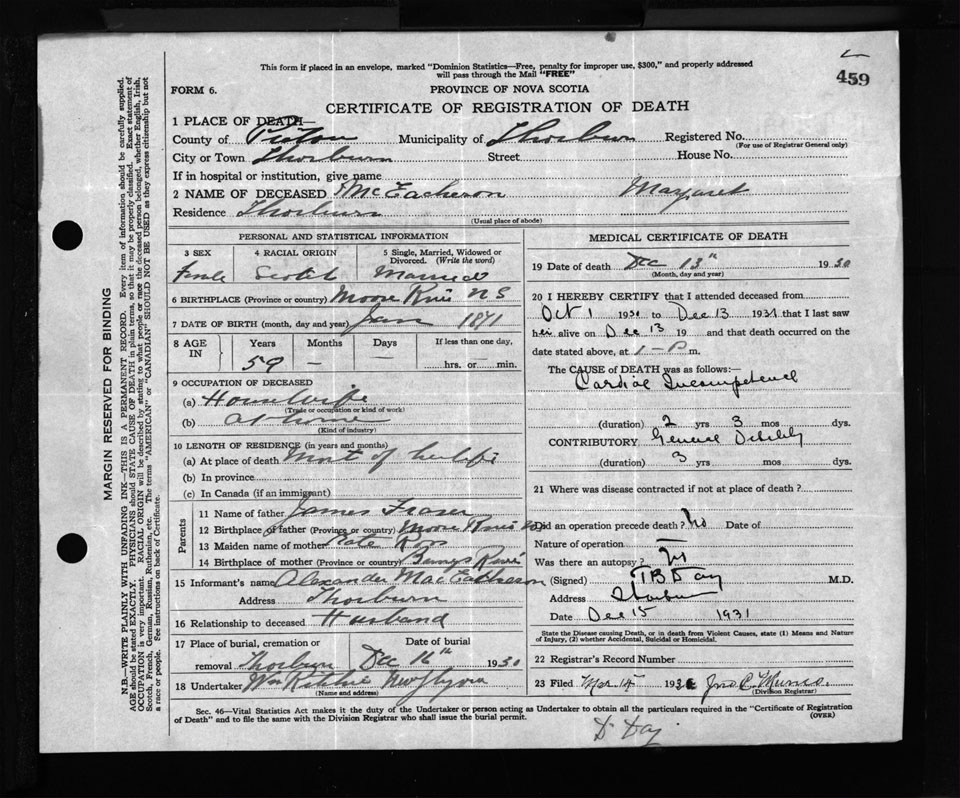 This form if placed in an envelope, marked "Dominion Statistics—Free, penalty for improper use, $300," and properly addressed
will pass through the Mail "FREE"
459
FORM 6.
PROVINCE OF NOVA SCOTIA
CERTIFICATE OF REGISTRATION OF DEATH
1 PLACE OF DEATH—
County of Pictou Municipality of Thorburn Registered No.
(For use of Registrar General only)
City or Town Thorburn Street House No.
If in hospital or institution, give name
2 NAME OF DECEASED McEacheron Margaret
Residence Thorburn
(Usual place of abode)
PERSONAL AND STATISTICAL INFORMATION
3 SEX 4 RACIAL ORIGIN 5 Single, Married, Widowed or
Divorced. (Write the word)
Female Scotch Married
6 BIRTHPLACE (Province or country) NS
7 DATE OF BIRTH (month, day and year) Jan 1871
8 AGE IN Years Months Days If less than one day,
59 — — hrs. or min.
9 OCCUPATION OF DECEASED
(a) Housewife
(Trade or occupation or kind of work)
(b) at home
(Kind of industry)
10 LENGTH OF RESIDENCE (in years and months)
(a) At place of death Most of her life
(b) In province
(c) In Canada (if an immigrant)
Parents
11 Name of father James Fraser
12 Birthplace of father (Province or country)
13 Maiden name of mother Kate Ross
14 Birthplace of mother (Province or country)
15 Informant's name Alexander MacEacheron
Address Thorburn
16 Relationship to deceased Husband
17 Place of burial, cremation or Date of burial
removal Thorburn Dec 16th 1930
18 Undertaker Wm Ritchie New Glasgow
(Name and address)
MEDICAL CERTIFICATE OF DEATH
19 Date of death Dec 13th 1930
(Month, day and year)
20 I HEREBY CERTIFY that I attended deceased from
Oct 1 to Dec 13 that I last saw
her alive on Dec 13 19 and that death occurred on the
date stated above, at 1-P m.
The CAUSE of DEATH was as follows:—
Cardiac Incompetence
(duration) 2 yrs 3 mos dys.
CONTRIBUTORY General Debility
(duration) 3 yrs mos dys.
21 Where was disease contracted if not at place of death?
Did an operation precede death? No Date of
Nature of operation
Was there an autopsy?
(Signed) Day M.D.
Address Thorburn
Date Dec 15 1931
State the Disease causing Death, or in death from Violent Causes, state (1) Means and Nature
of Injury, (2) whether Accidental, Suicidal or Homicidal.
22 Registrar's Record Number
23 Filed Jno C. Munro.
(Division Registrar)
Sec. 46—Vital Statistics Act makes it the duty of the Undertaker or person acting as Undertaker to obtain all the particulars required in the "Certificate of Registration
of Death" and to file the same with the Division Registrar who shall issue the burial permit.
(OVER)
Dr Day
MARGIN RESERVED FOR BINDING
N.B.—WRITE PLAINLY WITH UNFADING INK—THIS IS A PERMANENT RECORD. Every item of information should be carefully supplied.
AGE should be stated EXACTLY. PHYSICIANS should STATE CAUSE OF DEATH in plain terms, so that it may be properly classified. Exact statement of
OCCUPATION is very important. RACIAL ORIGIN will be described by stating to what people or race the deceased person belonged, whether English, Irish,
Scotch, French, German, Russian, Ruthenian, etc. The terms "AMERICAN" or "CANADIAN" SHOULD NOT BE USED as they express citizenship but not
a race or people. See instructions on back of Certificate.